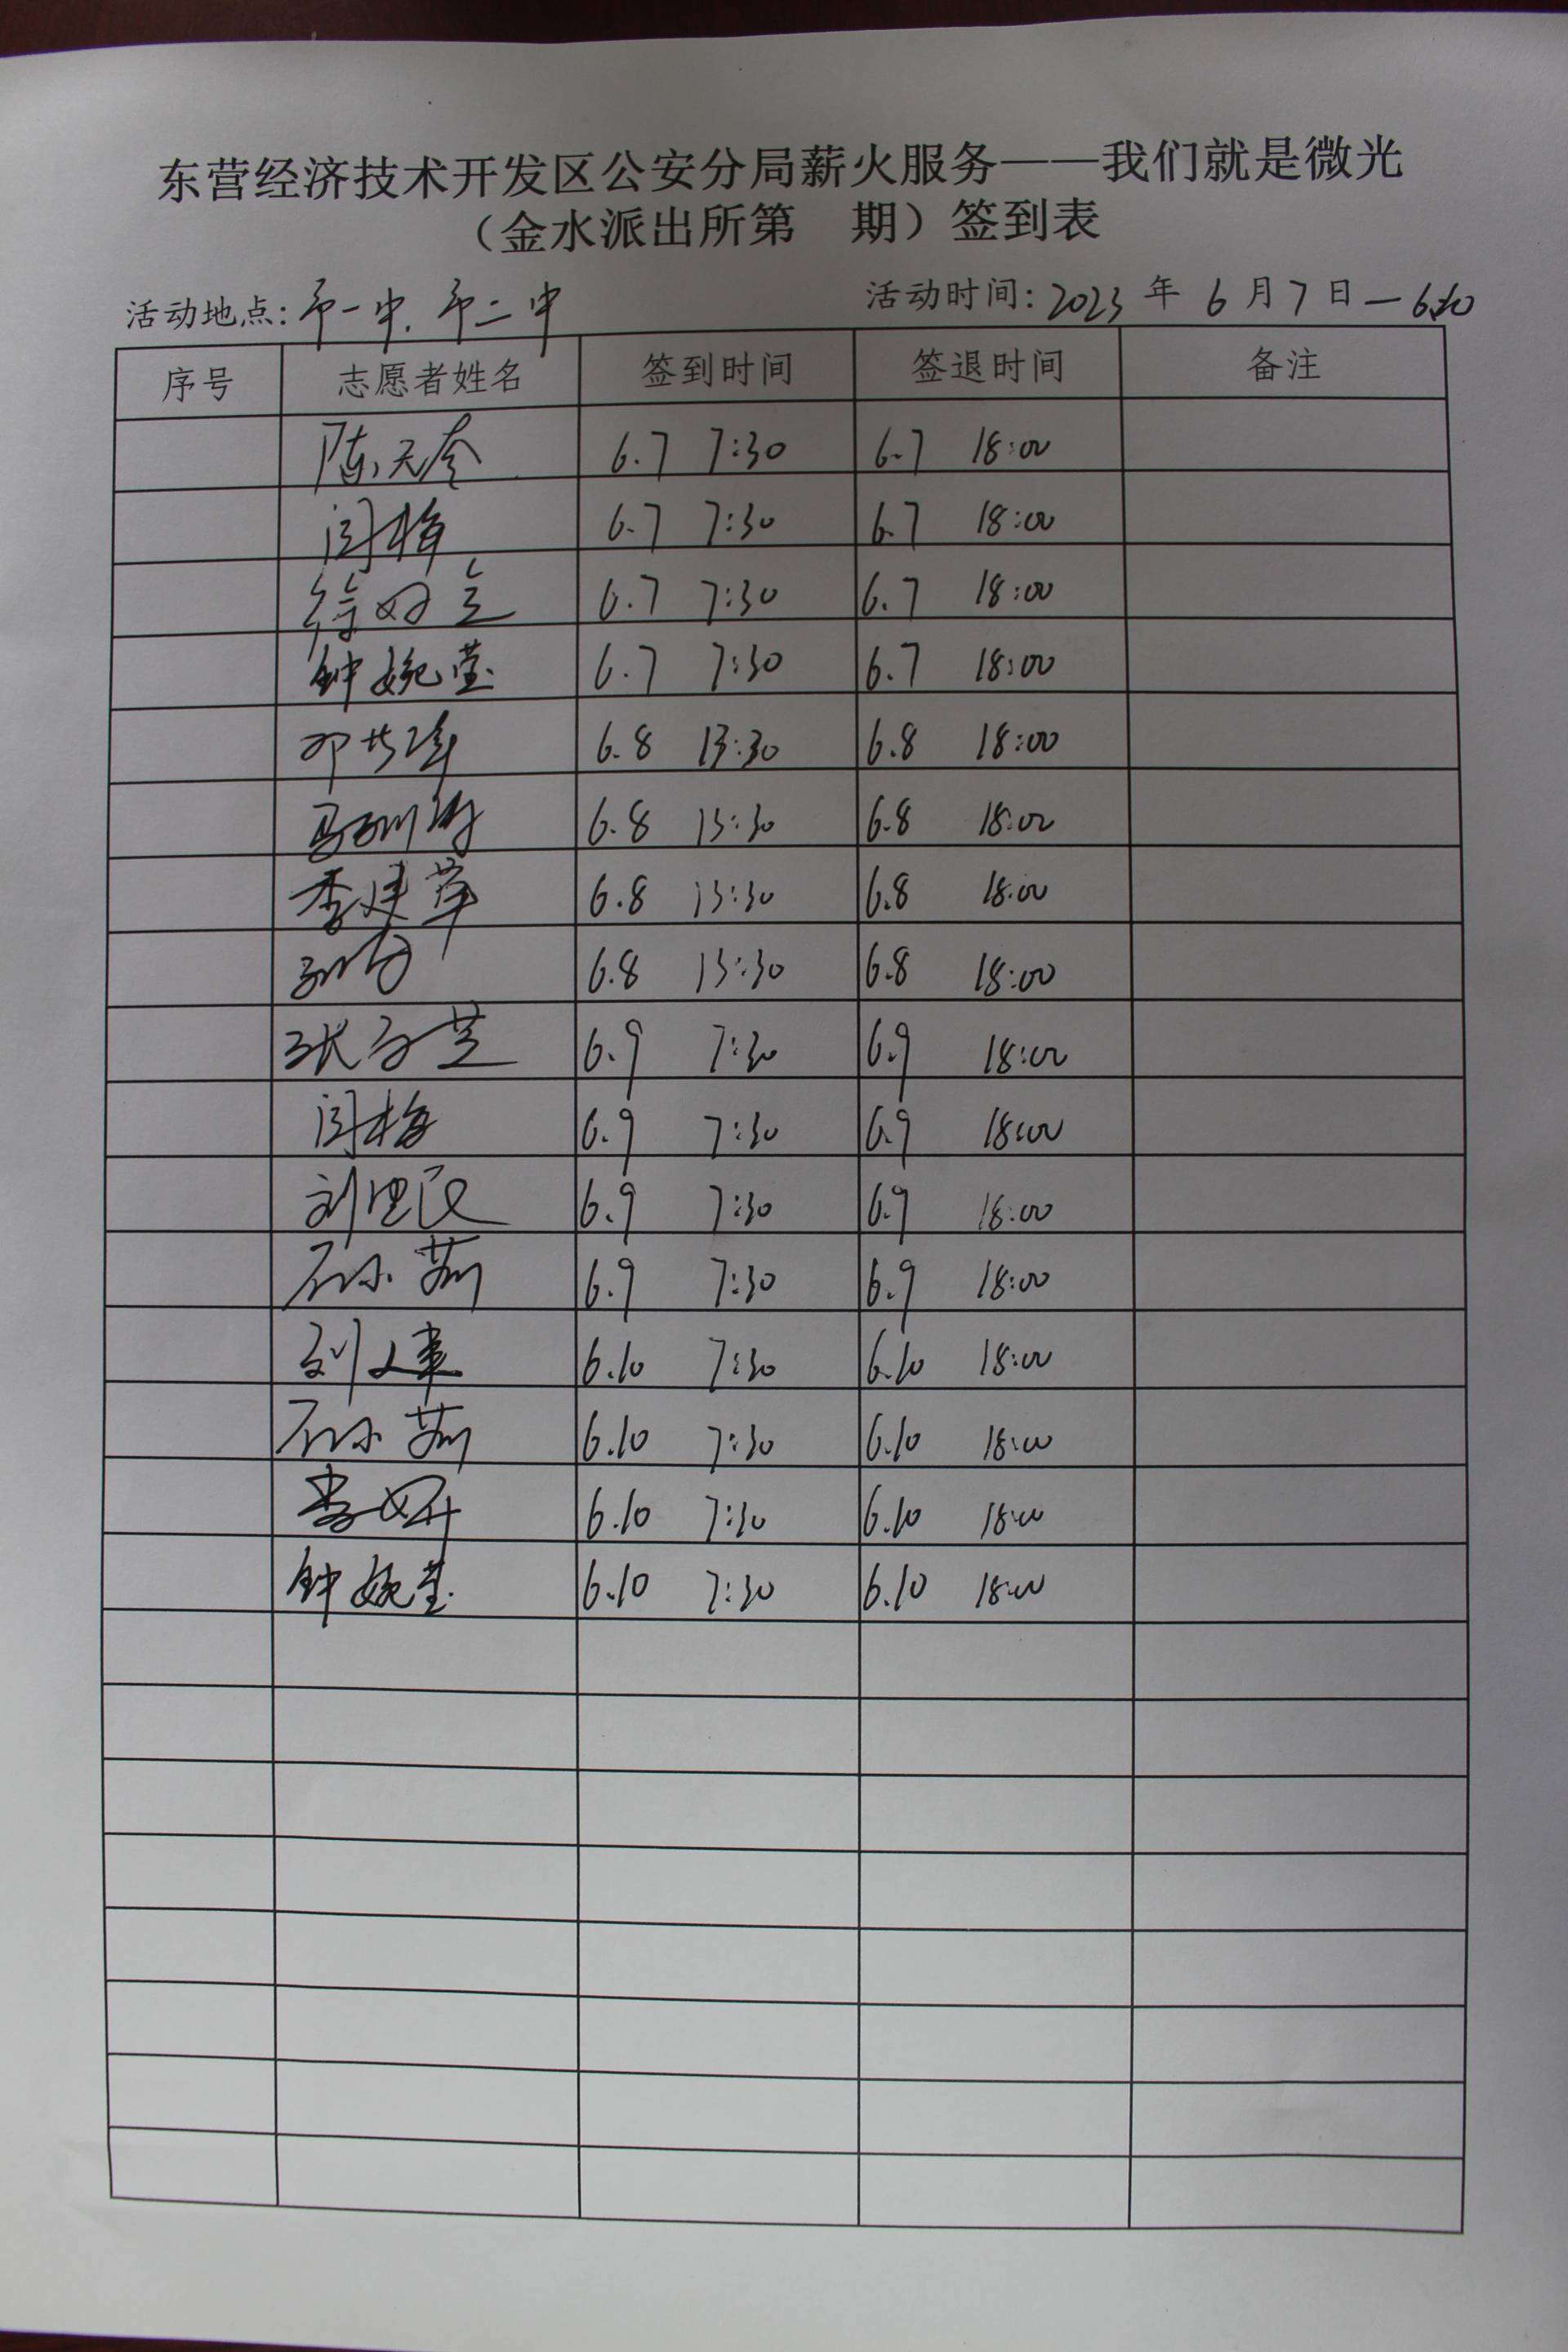 东营经济技术开发区公安分局薪火服务——我们就是微光
（金水派出所第 期）签到表
活动地点：市一中、市二中 活动时间：2023年6月7日—6.10
序号 志愿者姓名 签到时间 签退时间 备注
陈天 6.7 7:30 6.7 18:00
闫梅 6.7 7:30 6.7 18:00
徐 6.7 7:30 6.7 18:00
钟婉莹 6.7 7:30 6.7 18:00
邓 6.8 13:30 6.8 18:00
马 6.8 13:30 6.8 18:00
李建草 6.8 13:30 6.8 18:00
6.8 13:30 6.8 18:00
张 6.9 7:30 6.9 18:00
闫梅 6.9 7:30 6.9 18:00
刘 民 6.9 7:30 6.9 18:00
石小茹 6.9 7:30 6.9 18:00
刘 6.10 7:30 6.10 18:00
石小茹 6.10 7:30 6.10 18:00
李妍 6.10 7:30 6.10 18:00
钟婉莹 6.10 7:30 6.10 18:00